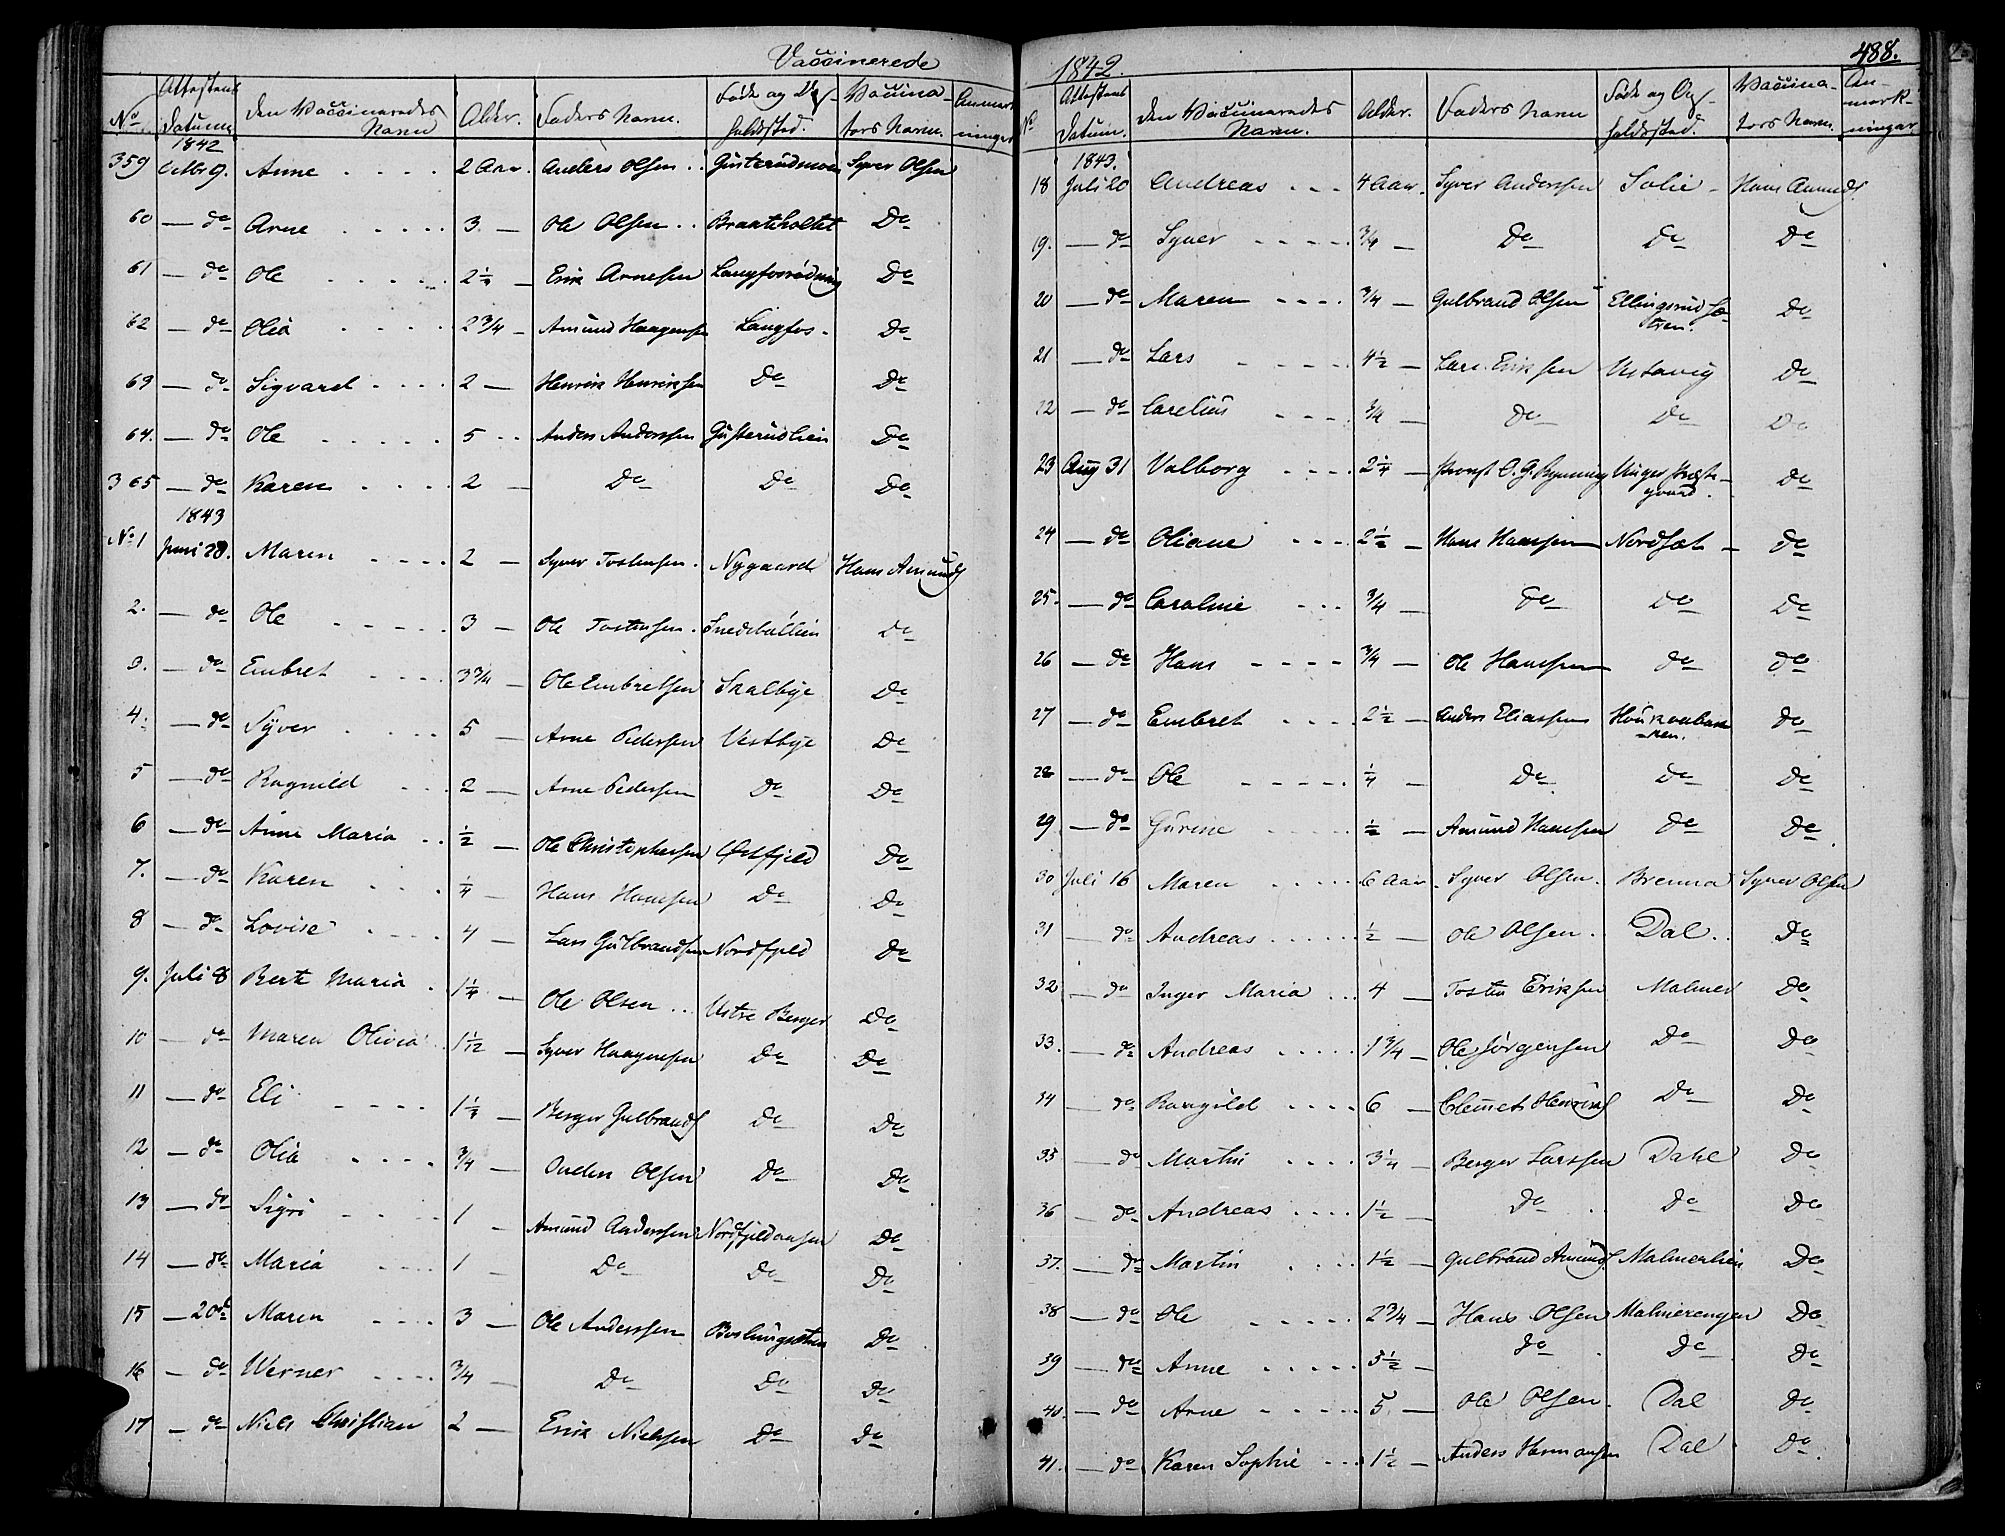 Vaccinerede
No Attestens Datum. den Vaccineredes Navn Alder. Faders Navn. Føde og Opholdssted. Vaccinators Navn. Anmærkninger
1842
359 Octbr 9. Anne 2 Aar. Anders Olsen Gusterudmoen Syver Olsen
60 — do Arne 3 Ole Olsen Do
61 — do Ole Erik Arnesen Do
62 — do Olia 2 3/4 — Amund Haagensen Langfos Do
63 — do Sigvard 2 — Henrik Henriksen Do Do
64. — do Ole 5 Anders Anderssen Gusterudlien Do
365 — do Karen 2 — Do Do Do
1843
No 1 Juni 28. Maren 2 — Syver Tostensen. Nygaard Hans Amunds
2. — do Ole 3 — Ole Tostensen. Do
3. — do Embret 3 3/4 — Ole Embretsen Skalbye Do
4. — do Syver 5 — Arne Pedersen Vestbye Do
5 — do Ragnild 2 — Arne Pedersen Do Do
6 — do Anne Maria 1/2 — Ole Christophersen Østfjeld Do
7. — do Karen 1/4 — Hans Hansen Do Do
8 — do Lovise 4 — Lars Gulbrandsen Nordfjeld Do
9. Juli 8 Bert Maria 1 1/4 — Ole Olsen Vestre Berger Do
10 — do Maren Olivia 1 1/2 — Syver Haagensen Do Do
11 — do Eli 1 1/2 — Berger Gulbrands Do Do
12 — do Olia 3/4 — Olsen Do Do
13 — do Sigri 1 — Amund Anderssen Nordfjeldaasen Do
14 — do Maria 1 — Do Do Do
15 — 20de Maren 3 — Ole Anderssen Do
16 — do Werner 3/4 — Do Do Do
17 — do Niels Christian 2 — Erik Nielsen Do Do
1842. 488.
No Attestens Datum. den Vaccineredes Navn. Alder. Faders Navn Føde og Opholdssted. Vaccinators Navn. Anmærkninger
1843.
18 Juli 20 Andreas 4 Aar. Syver Anderssen Solie Hans Amunds
19. — do Syver 3/4 — Do Do Do
20 — do Maren 3/4 — Gulbrand Olsen Ellingsrud Sætren. Do
21 — do Lars 4 1/2 — Lars Eriksen Vestavig Do
22 — do Carelius 3/4 — Do Do Do
23 Aug 31 Valborg 2 1/4 — Provst C. G. Rynning Vinger Præstegaard. Do
24 — do Oliane 2 1/2 — Hans Hanssen Nordset Do
25. — do Caroline 3/4 — Do Do Do
26 — do Hans 3/4 — Ole Hanssen Do Do
27 — do Embret 2 1/2 — Anders Eliassen Do
28 — do Ole 1/4 — Do Do Do
29 — do Gurine 1/2 — Amund Hanssen Do Do
30 Juli 16 Maren 6 Aar. Syver Olsen. Brenna Syver Olsen
31 — do Andreas 1/2 — Ole Olsen. Dal Do
32 — do Inger Maria 4 — Tosten Eriksen Malmer Do
33. — do Andreas 1 3/4 — Ole Jørgensen Do Do
34 — do Rangild 6 — Clemet Henriks Do Do
35 — do Martin 3 1/4 — Berger Larssen Dahl Do
36 — do Andreas 1 1/2 — Do Do Do
37. — do Martin 1 1/2 — Gulbrand Amunds. Malmerlien Do
38 — do Ole 2 3/4 — Hans Olsen Malmerengen Do
39 — do Anne 5 1/2 — Do Do Do
40. — do Arne 5. — Ole Olsen. Dal Do
41. — do Karen Sophie 1 1/2 — Anders Hermansen Dal Do